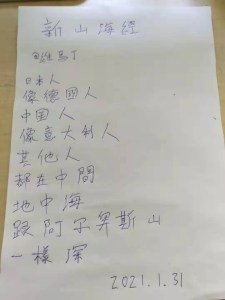 新山海經
日本人
像德國人
中国人
像意大利人
其他人
都在中間
地中海
跟阿尔卑斯山
一樣深
2021.1.31